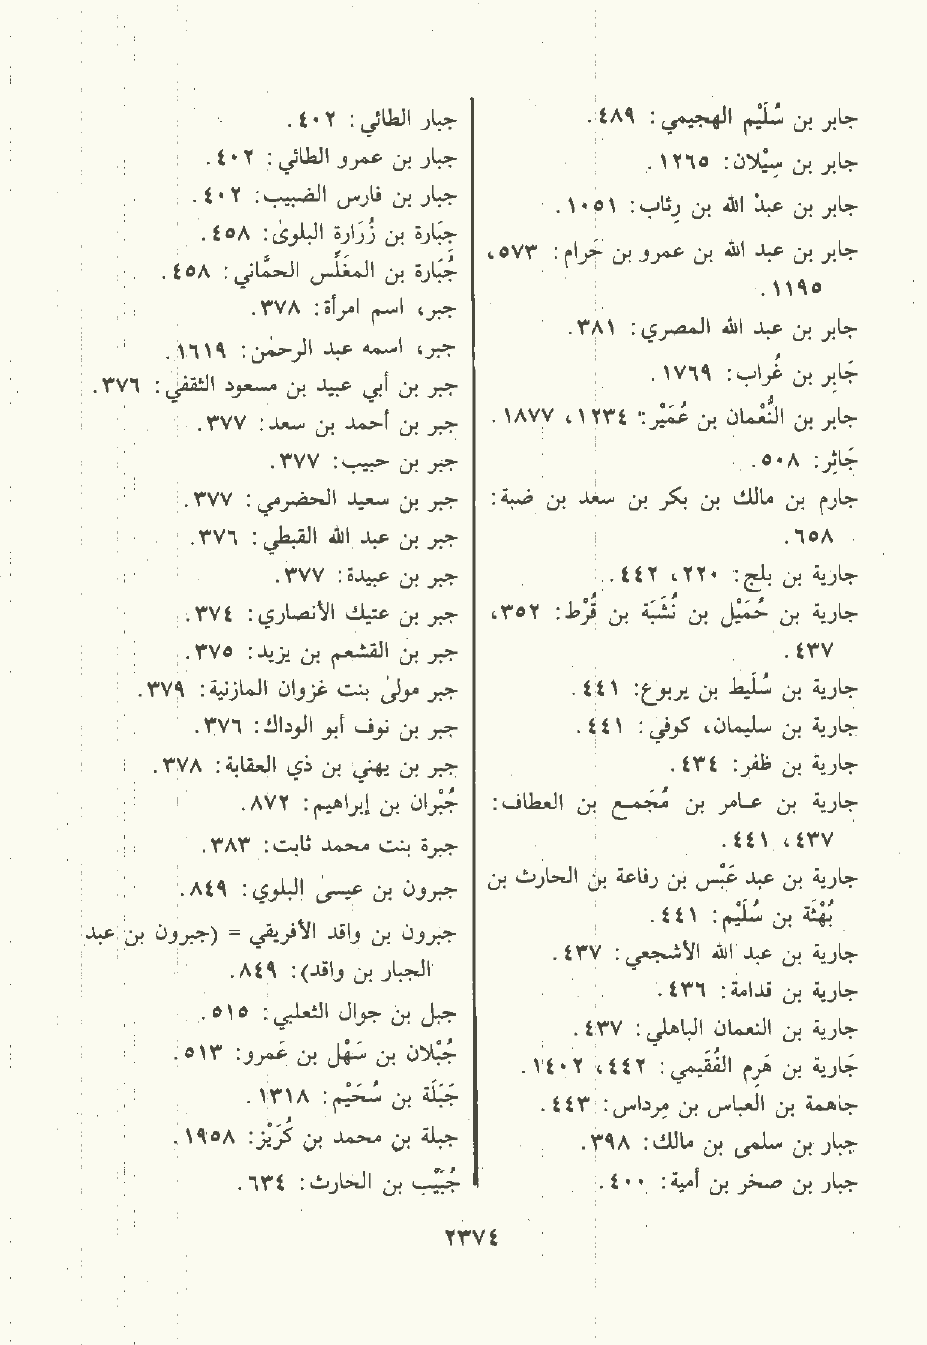 جابر بن سُلَيْم الهجيمي: ٤٨٩.
جابر بن سِيْلان: ١٢٦٥.
جابر بن عبدْ الله بن رِئاب: ١٠٥١.
جابر بن عبد الله بن عمرو بن حَرام: ٥٧٣،
١١٩٥.
جابر بن عبد الله المصري: ٣٨١.
جَابِر بن غُراب: ١٧٦٩.
جابر بن النُّعْمان بن عُمَيْر: ١٢٣٤، ١٨٧٧.
جَاثِر: ٥٠٨.
جارم بن مالك بن بكر بن سعد بن ضبة:
٦٥٨.
جارية بن بلج: ٢٢٠، ٤٤٢.
جارية بن حُمَيْل بن نُشَبَة بن قُرْط: ٣٥٢،
٤٣٧.
جارية بن سُلَيط بن يربوع: ٤٤١.
جارية بن سليمان، كوفي: ٤٤١.
جارية بن ظفر: ٤٣٤.
جارية بن عـامر بن مُجَمـع بن العطاف:
٤٣٧، ٤٤١.
جارية بن عبد عَبْس بن رفاعة بن الحارث بن
بُهْثَة بن سُلَيْم: ٤٤١.
جارية بن عبد الله الأشجعي: ٤٣٧.
جارية بن قدامة: ٤٣٦.
جارية بن النعمان الباهلي: ٤٣٧.
جَارية بن هَرِم الفُقَيمي: ٤٤٢، ١٤٠٢.
جاهمة بن العباس بن مِرداس: ٤٤٣.
جبار بن سلمى بن مالك: ٣٩٨.
جبار بن صخر بن أمية: ٤٠٠.
جبار الطائي: ٤٠٢.
جبار بن عمرو الطائي: ٤٠٢.
جبار بن فارس الضبيب: ٤٠٢.
جِبَارة بن زُرَارة البلوىٰ: ٤٥٨.
جُبَارة بن المغَلِّس الحمَّاني: ٤٥٨.
جبر، اسم امرأة: ٣٧٨.
جبر، اسمه عبد الرحمٰن: ١٦١٩.
جبر بن أبي عبيد بن مسعود الثقفي: ٣٧٦.
جبر بن أحمد بن سعد: ٣٧٧.
جبر بن حبيب: ٣٧٧.
جبر بن سعيد الحضرمي: ٣٧٧.
جبر بن عبد الله القبطي: ٣٧٦.
جبر بن عبيدة: ٣٧٧.
جبر بن عتيك الأنصاري: ٣٧٤.
جبر بن القشعم بن يزيد: ٣٧٥.
جبر مولىٰ بنت غزوان المازنية: ٣٧٩.
جبر بن نوف أبو الوداك: ٣٧٦.
جبر بن يهني بن ذي العقابة: ٣٧٨.
جُبْران بن إبراهيم: ٨٧٢.
جبرة بنت محمد ثابت: ٣٨٣.
جبرون بن عيسىٰ البلوي: ٨٤٩.
جبرون بن واقد الأفريقي = (جبرون بن عبد
الجبار بن واقد): ٨٤٩.
جبل بن جوال الثعلبي: ٥١٥.
جُبْلان بن سَهْل بن عَمرو: ٥١٣.
جَبَلَة بن سُحَيْم: ١٣١٨.
جبلة بن محمد بن كُرَيْز: ١٩٥٨.
جُبَيْب بن الحارث: ٦٣٤.
٢٣٧٤